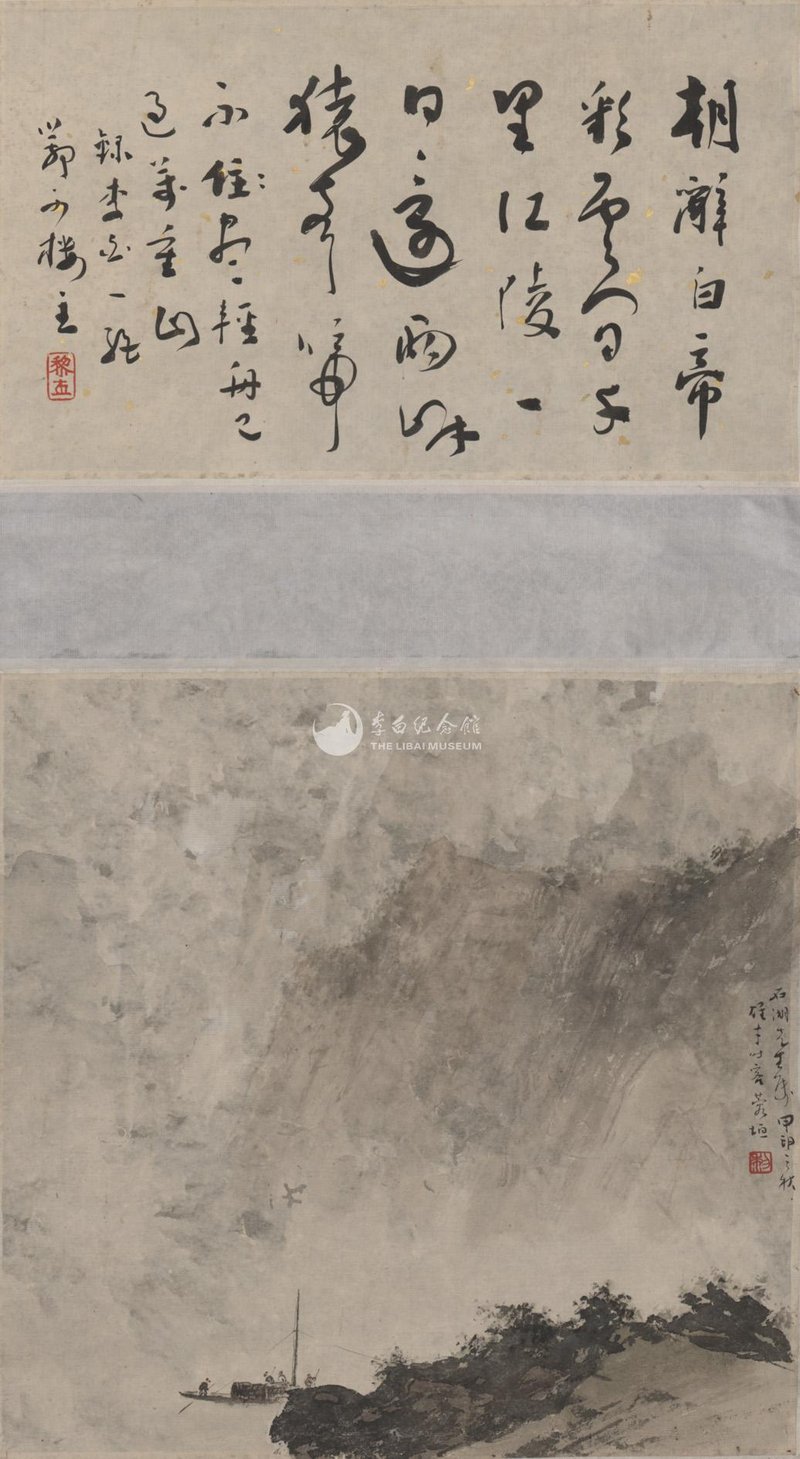 朝辭白帝
彩雲間千
里江陵一
日還兩岸
猿聲啼
不住盡輕舟已
過萬重山
錄李白一絕
樓主
李白纪念館
THE LIBAI MUSEUM
石湖先生屬 甲申之秋
雄才時客